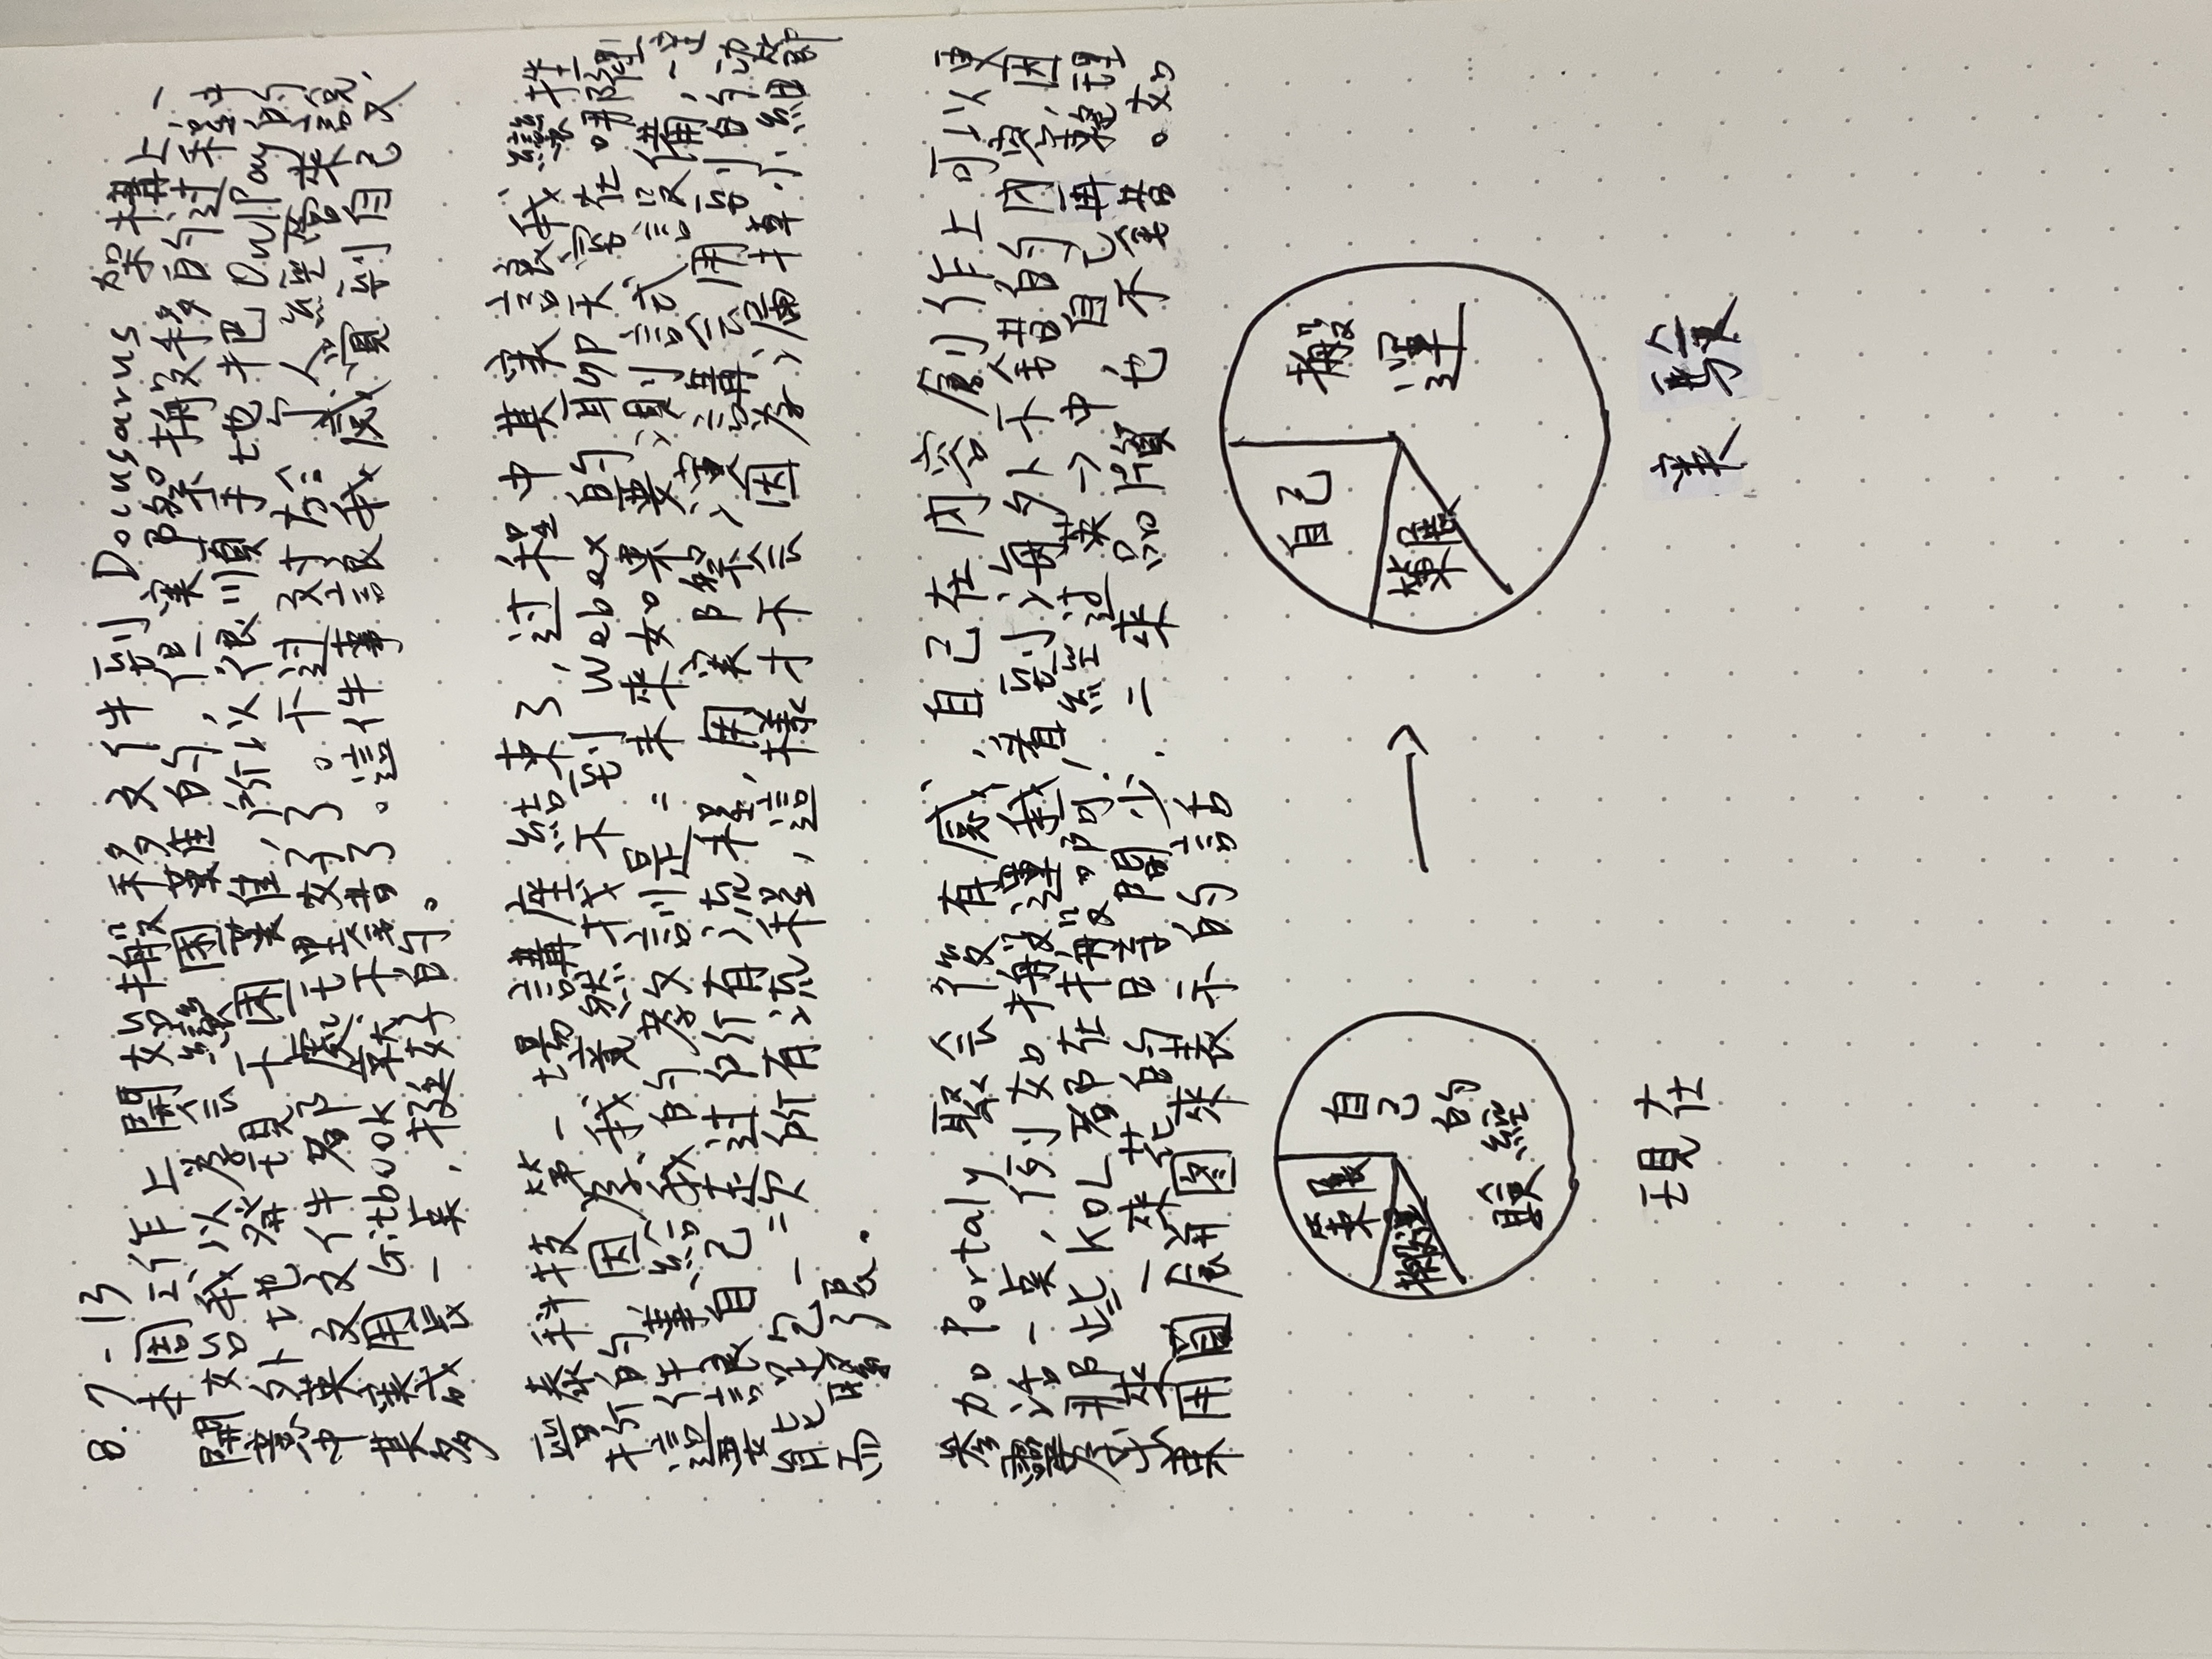 8.7-13
本周工作上開始搬移文件到 Docusarus 架構上,一
開始我以為会蠻困難的,但実際搬移的过程中
意外地發現不困難,所以很順手地把 OwlPay 的
中英文文件都處理好了。不过対於个人經營來說,
其実用 Gitbook 就不錯了。這件事讓我感覚到自己又
多成長一点,挺好的。
晉泰科技第一場講座結束了,过程中其実讓我蠻挫
折的,因為我竟然找不到 Webex 的聊天室在哪裡
這件事給我的教訓是:未來如果要測試設備,一定
要讓自己走过所有流程,用実際演講会用到的功
能跑一次所有流程,這樣才不会因為漏掉小細節
而緊張。
参加 Portaly 聚会後有感,自己在内容創作上可以更
靈活一点,例如搬運我看到海外不錯的内容,因
為那些 KOL 都在搬啊!經过英→中,自己再整理
出來,一來花的時間少,二來品質也不錯。如
果用圓餅图來表示的話
策展
自己的經驗
搬運
自己
搬運
策展
現在
実驗